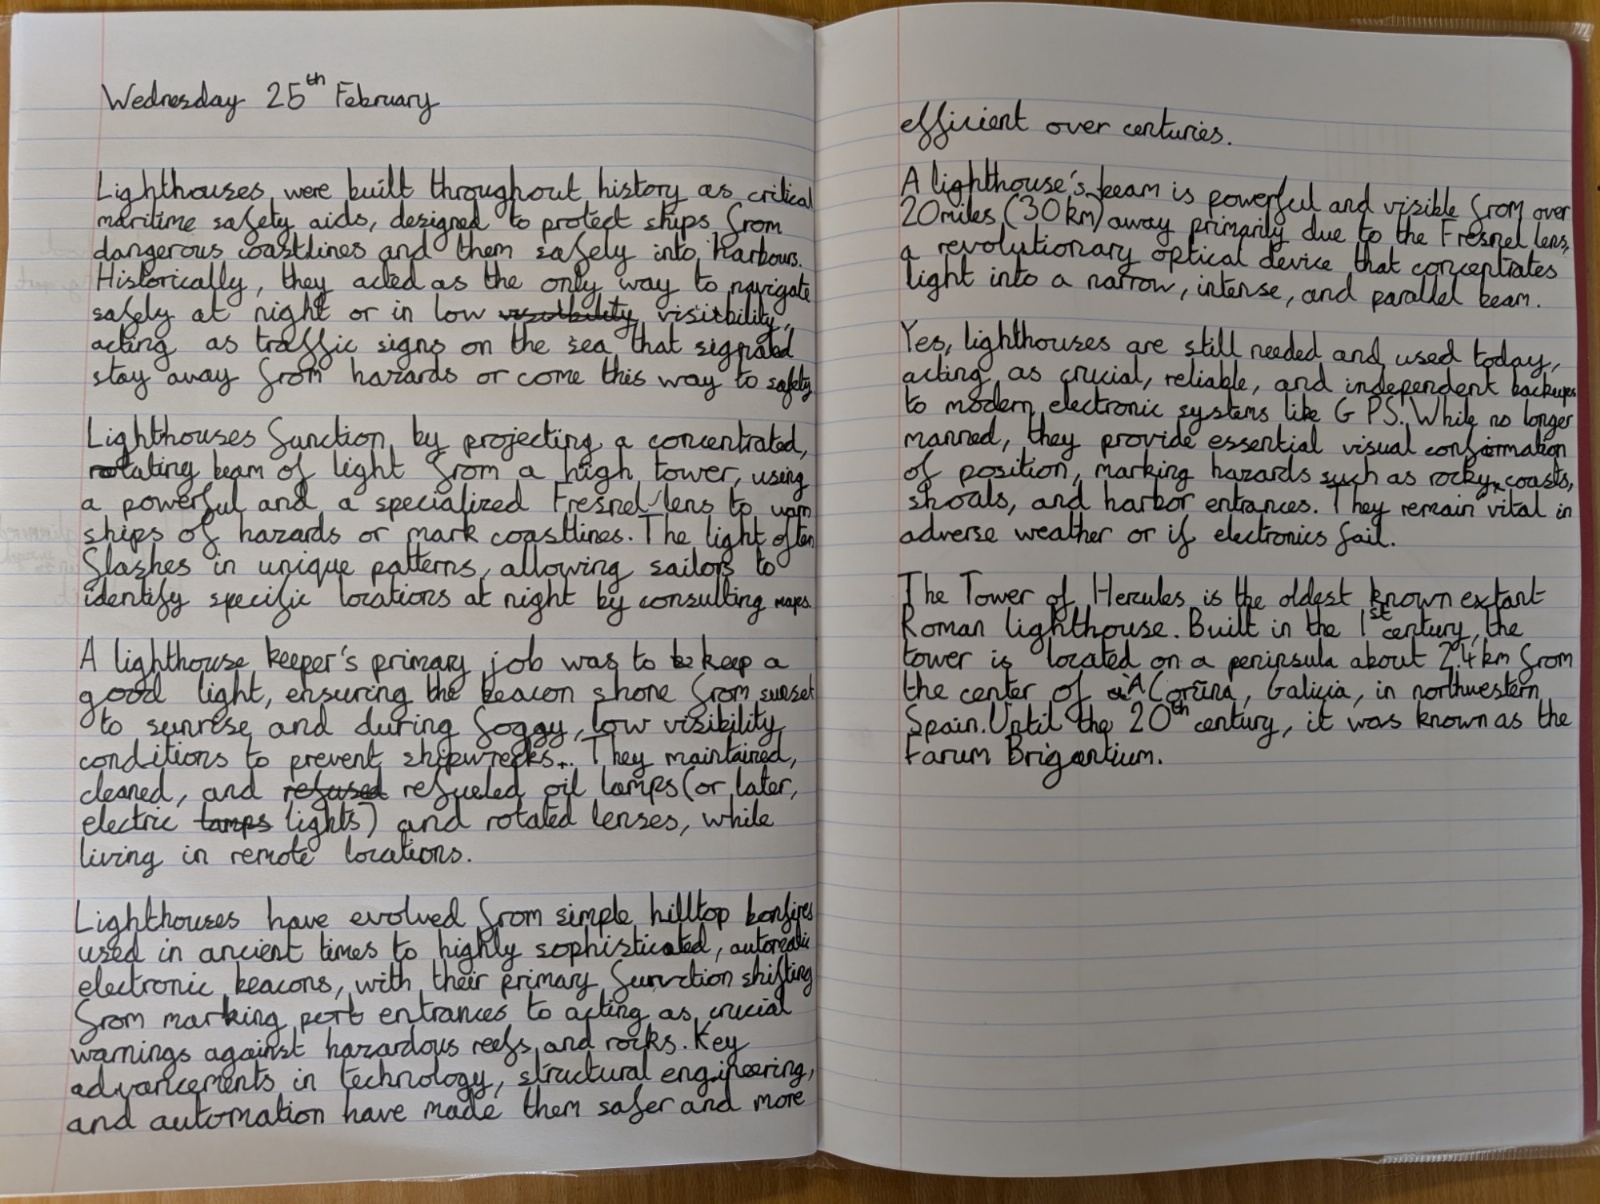 Wednesday 25th February
Lighthouses were built throughout history as critical
maritime safety aids, designed to protect ships from
dangerous coastlines and them safely into harbours.
Historically, they acted as the only way to navigate
safely at night or in low visibility,
acting as traffic signs on the sea that signaled
stay away from hazards or come this way to safety
Lighthouses function by projecting a concentrated,
rotating beam of light from a high tower, using
a powerful and a specialized Fresnel lens to warn
ships of hazards or mark coastlines. The light often
flashes in unique patterns, allowing sailors to
identify specific locations at night by consulting maps.
A lighthouse keeper's primary job was to keep a
good light, ensuring the beacon shone from sunset
to sunrise and during foggy, low visibility
conditions to prevent shipwrecks. They maintained,
cleaned, and refused refueled oil lamps (or later,
electric lamps lights) and rotated lenses, while
living in remote locations.
Lighthouses have evolved from simple hilltop bonfires
used in ancient times to highly sophisticated, automatic
electronic beacons, with their primary function shifting
from marking port entrances to acting as crucial
warnings against hazardous reefs and rocks. Key
advancements in technology, structural engineering,
and automation have made them safer and more
efficient over centuries.
A lighthouse's beam is powerful and visible from over
20miles (30km) away primarily due to the Fresnel lens,
a revolutionary optical device that concentrates
light into a narrow, intense, and parallel beam.
Yes, lighthouses are still needed and used today,
acting as crucial, reliable, and independent backups
to modern electronic systems like GPS. While no longer
manned, they provide essential visual confirmation
of position, marking hazards such as rocky coasts,
shoals, and harbor entrances. They remain vital in
adverse weather or if electronics fail.
The Tower of Hercules is the oldest known extant
Roman lighthouse. Built in the 1st century, the
tower is located on a peninsula about 2.4km from
the center of A Coruña, Galicia, in northwestern
Spain. Until the 20th century, it was known as the
Farum Brigantium.